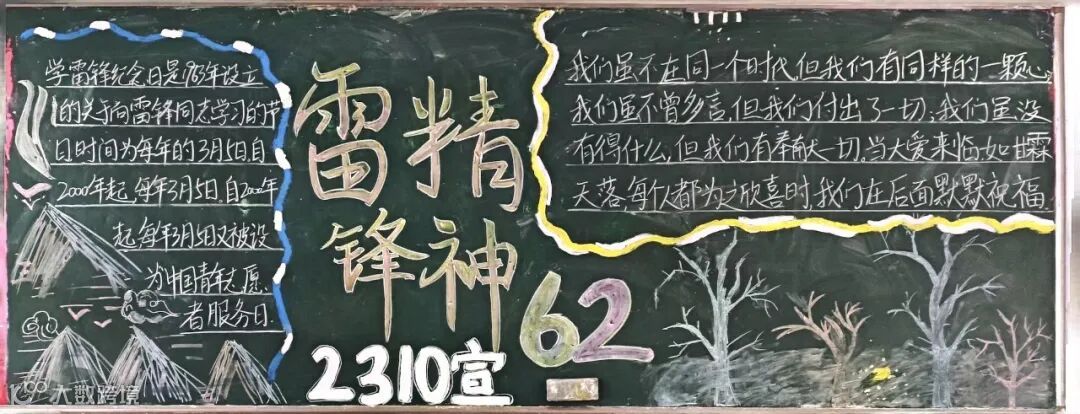 学雷锋纪念日是1963年设立
的关于向雷锋同志学习的节
日时间为每年的3月5日.自
2000年起,每年3月5日.自2000年
起,每年3月5日又被设
为中国青年志愿
者服务日
雷精
锋神
62
2310宣
我们虽不在同一个时代,但我们有同样的一颗心
我们虽不曾多言,但我们付出了一切;我们虽没
有得什么,但我们有奉献大一切.当大爱来临,如甘霖
天落,每似都为之欣喜时,我们在后面默默祝福
大数跨境